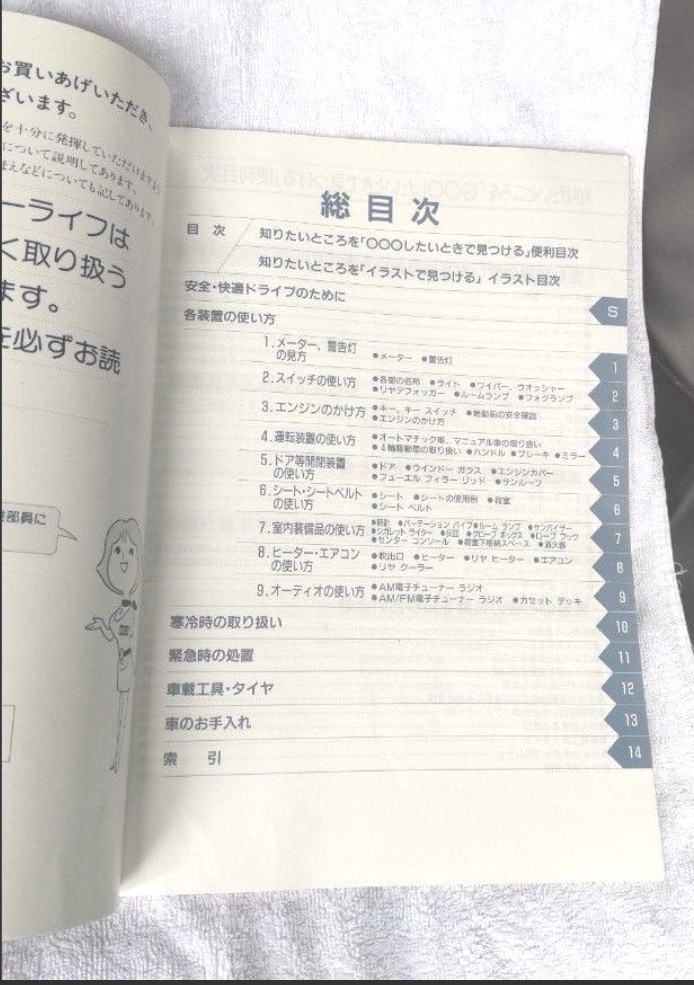 お買いあげいただき、
ざいます。
を十分に発揮していただけますよう
について説明してあります。
まえなどについても記してあります。
ーライフは
く取り扱う
ます。
を必ずお読
部員に
総目次
目 次
知りたいところを「〇〇〇したいときで見つける」便利目次
知りたいところを「イラストで見つける」イラスト目次
安全・快適ドライブのために
S
各装置の使い方
1.メーター、警告灯
の見方
●メーター ●警告灯
1
2.スイッチの使い方
●各部の名称 ●ライト ●ワイパー、ウオッシャー
●リヤデフォッガー ●ルームランプ ●フォグランプ
2
3.エンジンのかけ方
●キー、キー スイッチ ●始動前の安全確認
●エンジンのかけ方
3
4.運転装置の使い方
●オートマチック車、マニュアル車の取り扱い
●4輪駆動車の取り扱い ●ハンドル ●ブレーキ ●ミラー
4
5.ドア等開閉装置
の使い方
●ドア ●ウインドー ガラス ●エンジンカバー
●フューエル フィラー リッド ●サンルーフ
5
6.シート・シートベルト
の使い方
●シート ●シートの使用例 ●荷室
●シート ベルト
6
7.室内装備品の使い方
●時計 ●パーテーション パイプ ●ルーム ランプ ●サンバイザー
●シガレット ライター ●灰皿 ●グローブ ボックス ●ロープ フック
●センター コンソール ●荷室下格納スペース ●消火器
7
8.ヒーター・エアコン
の使い方
●吹出口 ●ヒーター ●リヤ ヒーター ●エアコン
●リヤ クーラー
8
9.オーディオの使い方
●AM電子チューナー ラジオ
●AM/FM電子チューナー ラジオ ●カセット デッキ
9
寒冷時の取り扱い
10
緊急時の処置
11
車載工具・タイヤ
12
車のお手入れ
13
索 引
14